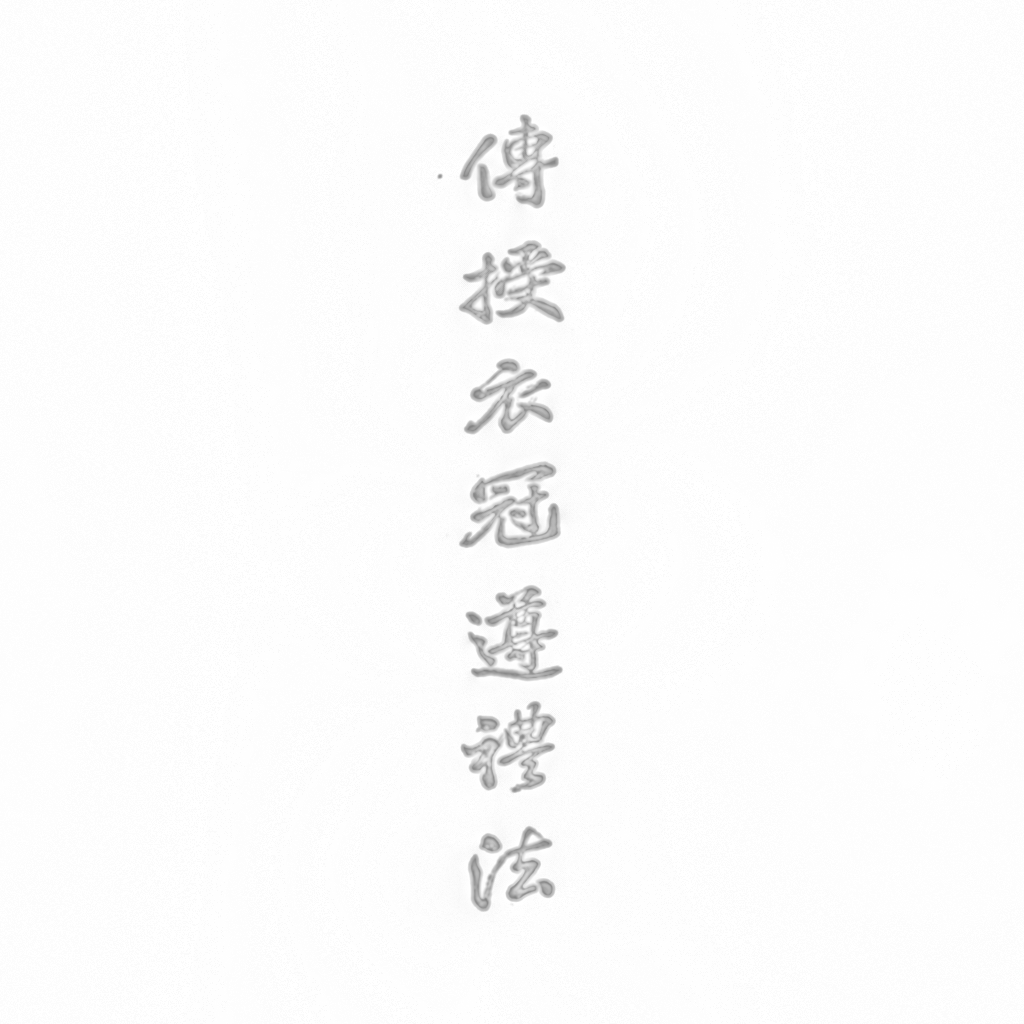 傳授衣冠遵禮法